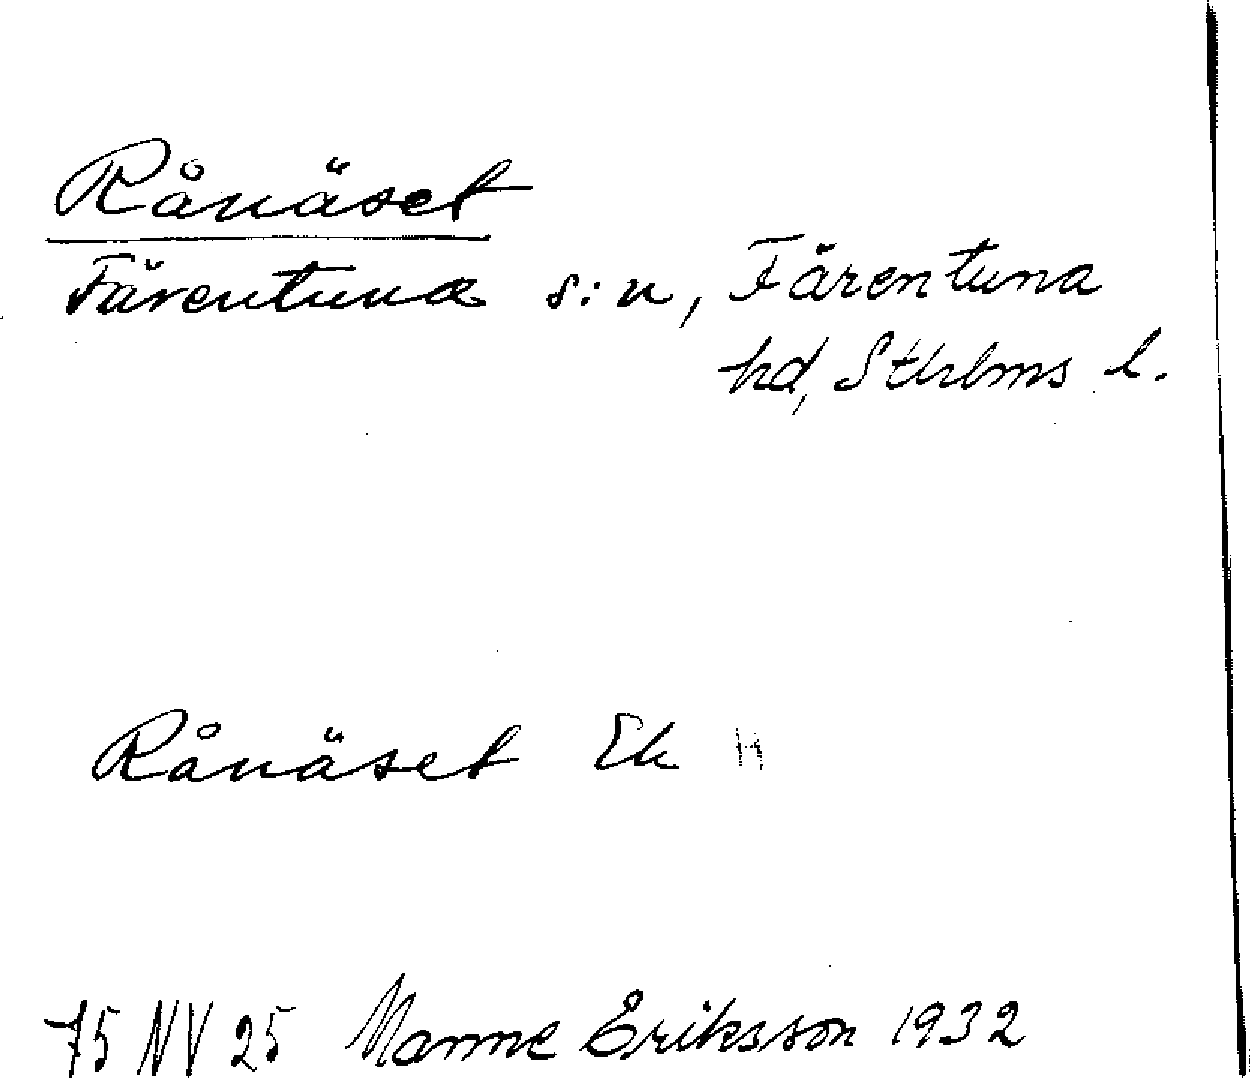 Rånäset
Färentuna s:n, Färentuna
hd, Sthlms l.
Rånäset Ek
75 NV 25 Manne Eriksson 1932